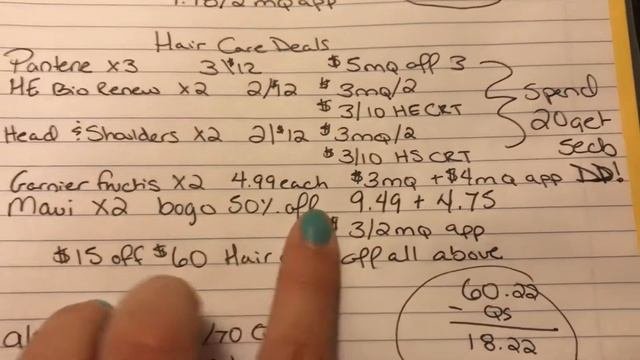 1.10/2 mq app
Hair Care Deals
Pantene x3 3/$12 $5mq off 3
HE Bio Renew x2 2/$12 $3mq/2
$3/10 HECRT
Head & Shoulders x2 2/$12 $3mq/2
$3/10 HSCRT
Spend
20 get
5ecb
Garnier fructis x2 4.99 each $3mq + $4mq app DD!
Maui x2 bogo 50% off 9.49 + 4.75
$3/2mq app
$15 off $60 Hair off all above
60.22
- Qs
18.22